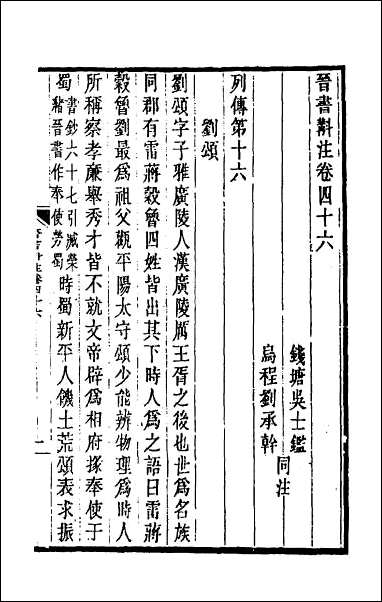 晉書斠注卷四十六
錢塘吳士鑑
烏程劉承幹
同注
列傳第十六
劉頌
劉頌字子雅廣陵人漢廣陵厲王胥之後也世爲名族
同郡有雷蔣穀魯四姓皆出其下時人爲之語曰雷蔣
穀魯劉最爲祖父觀平陽太守頌少能辨物理爲時人
所稱察孝廉舉秀才皆不就文帝辟爲相府掾奉使于
蜀書鈔六十七引臧榮
緒晉書作奉使勞蜀時蜀新平人饑土荒頌表求振